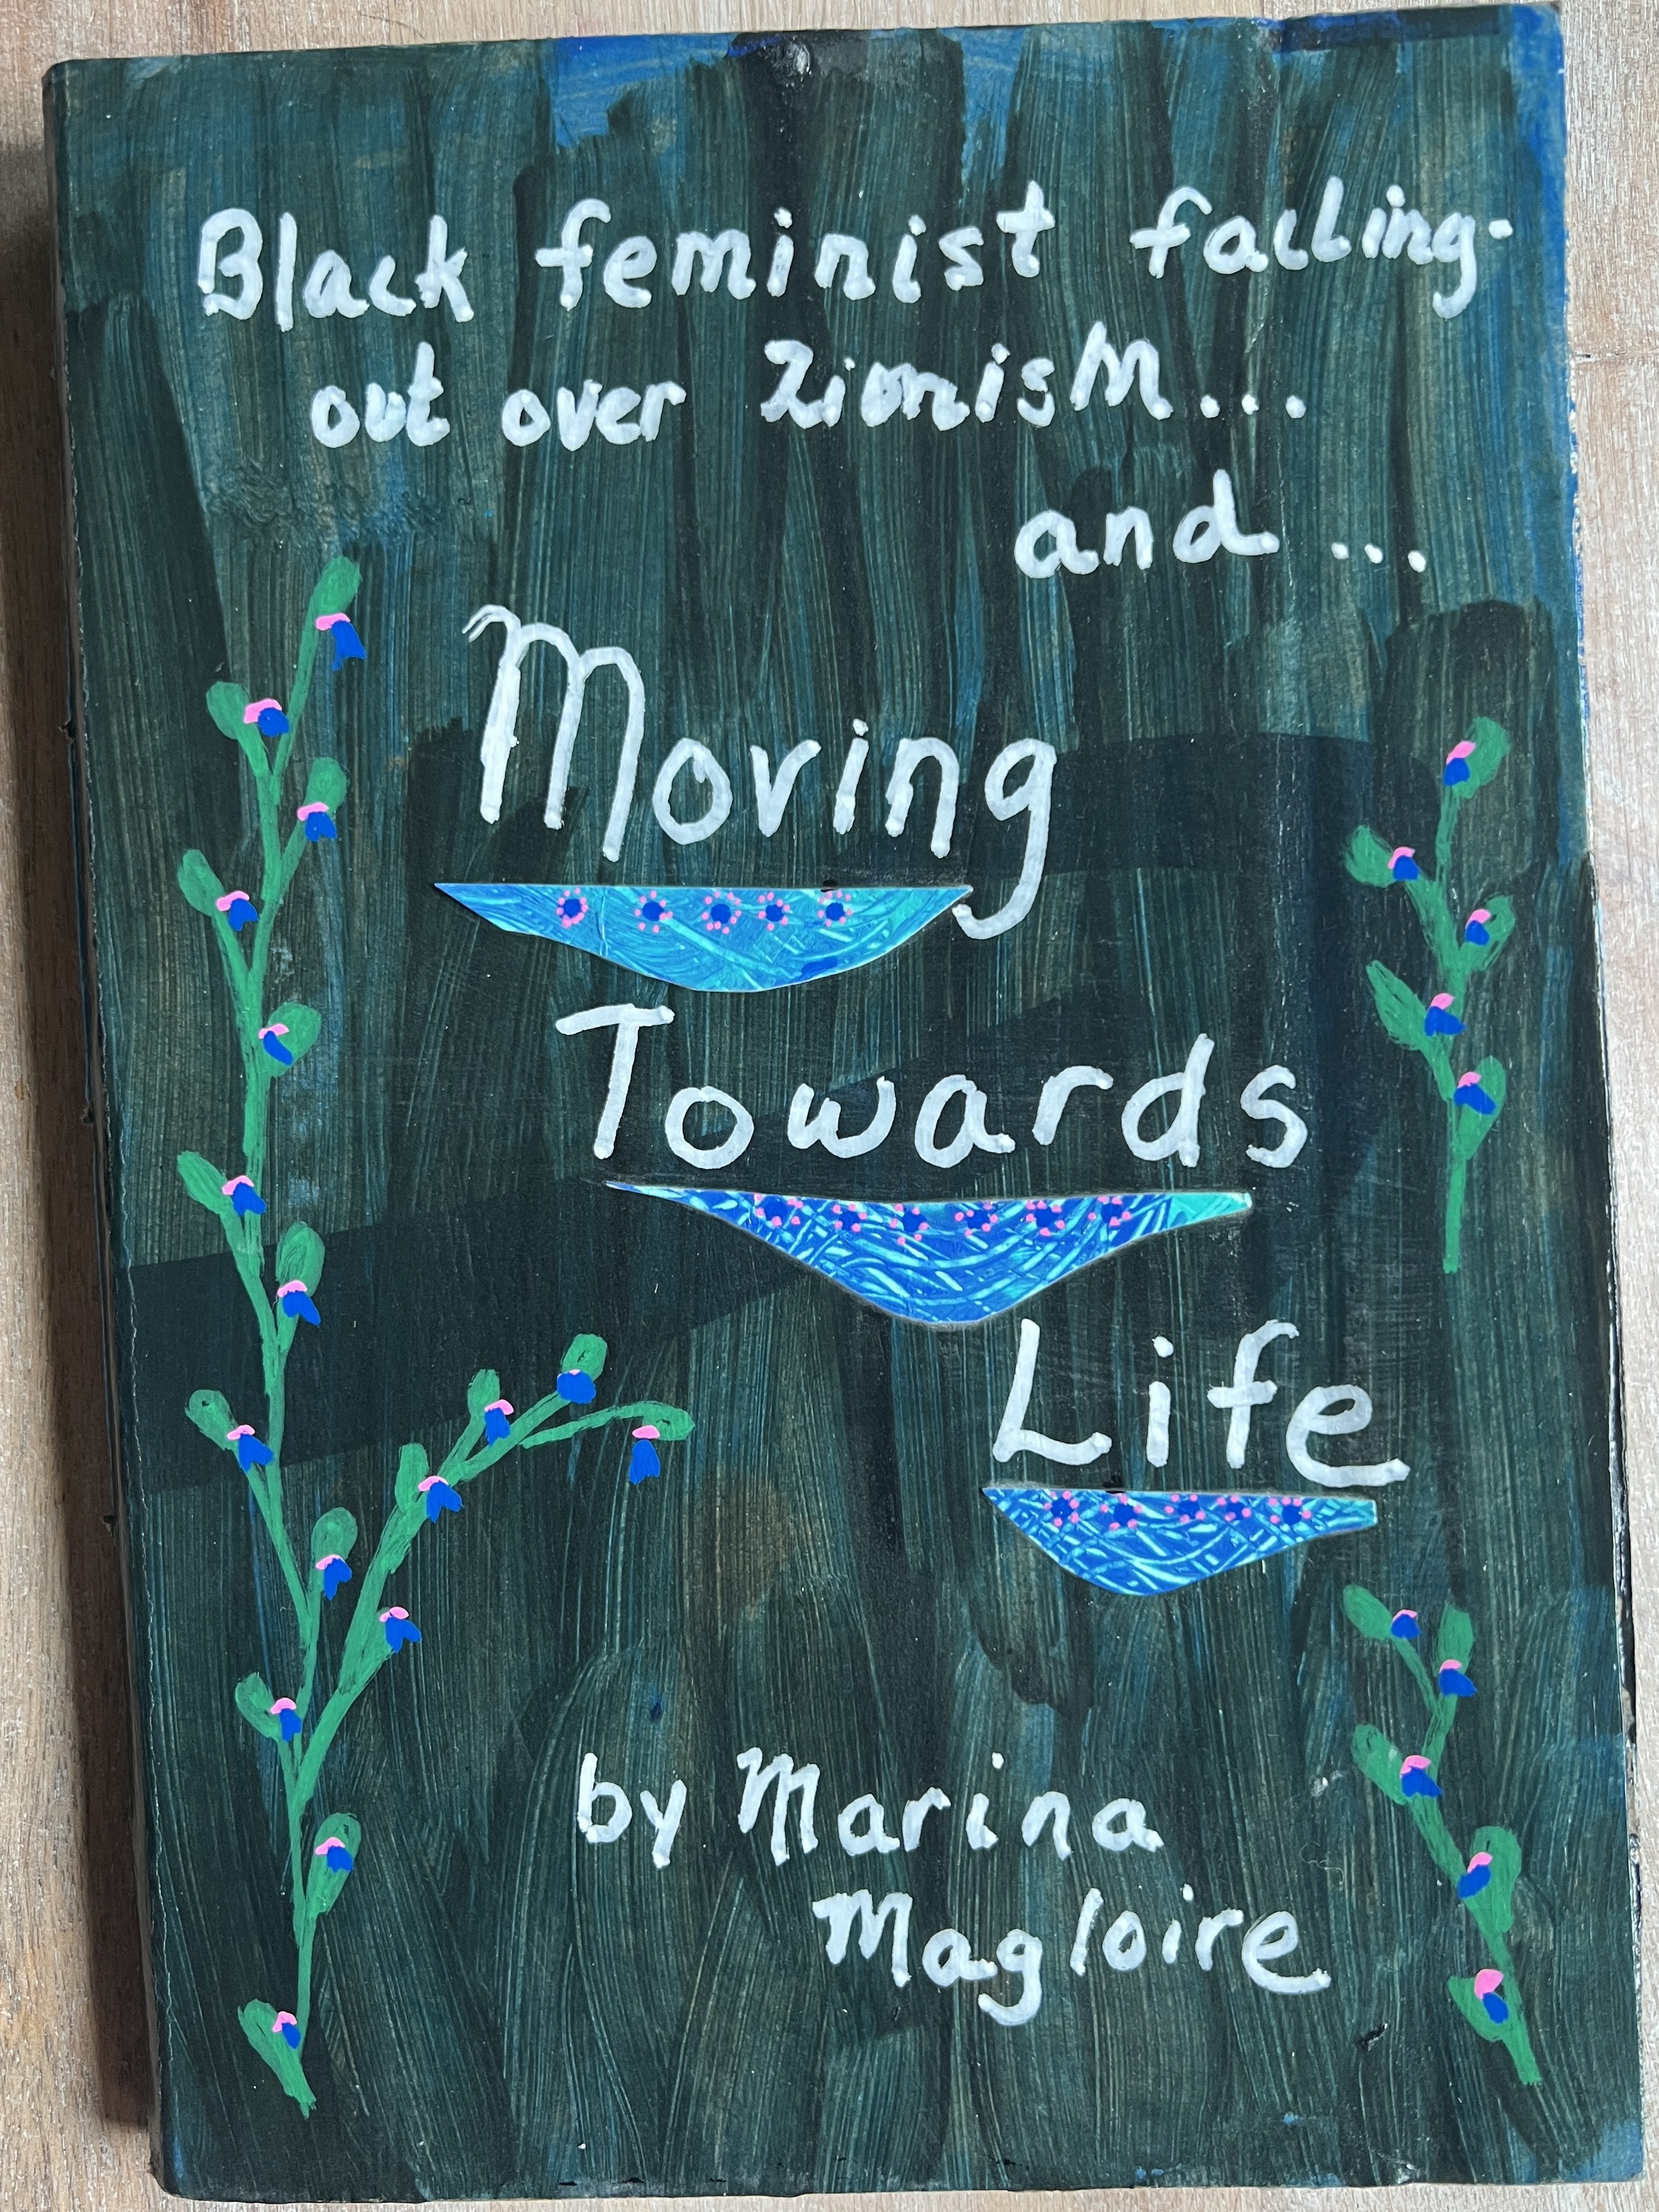 Black feminist falling-
out over Zionism...
and ...
Moving
Towards
Life
by Marina
Magloire